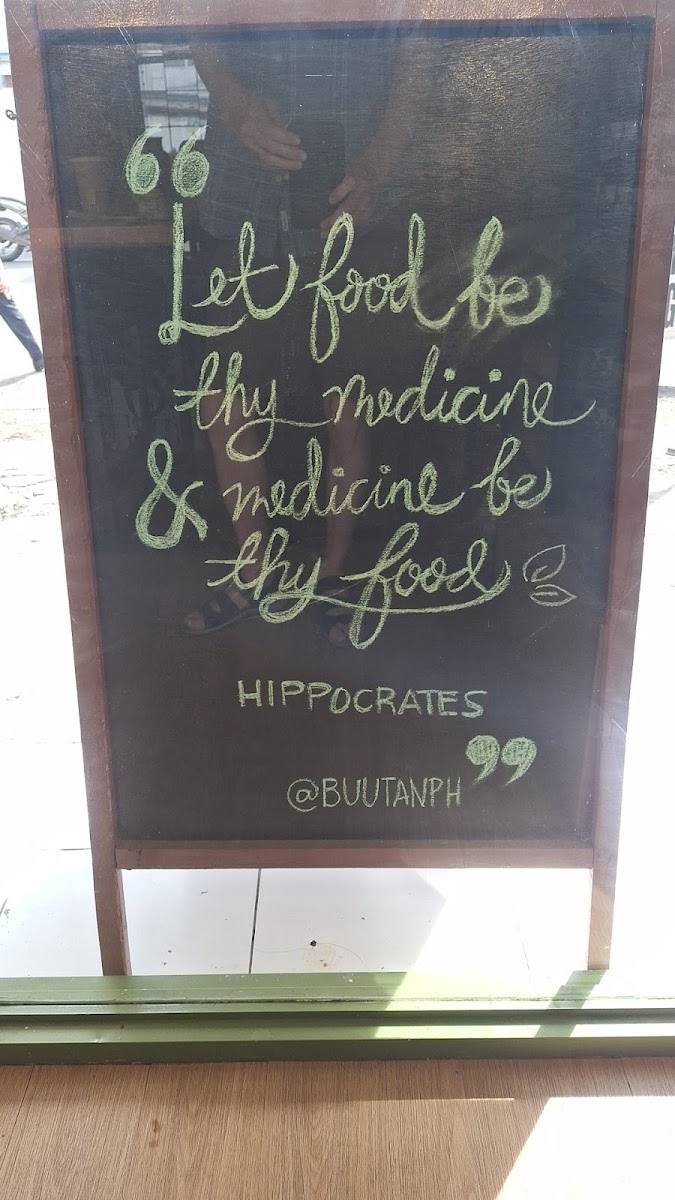 “
Let food be
thy medicine
& medicine be
thy food
HIPPOCRATES
”
@BUUTANPH